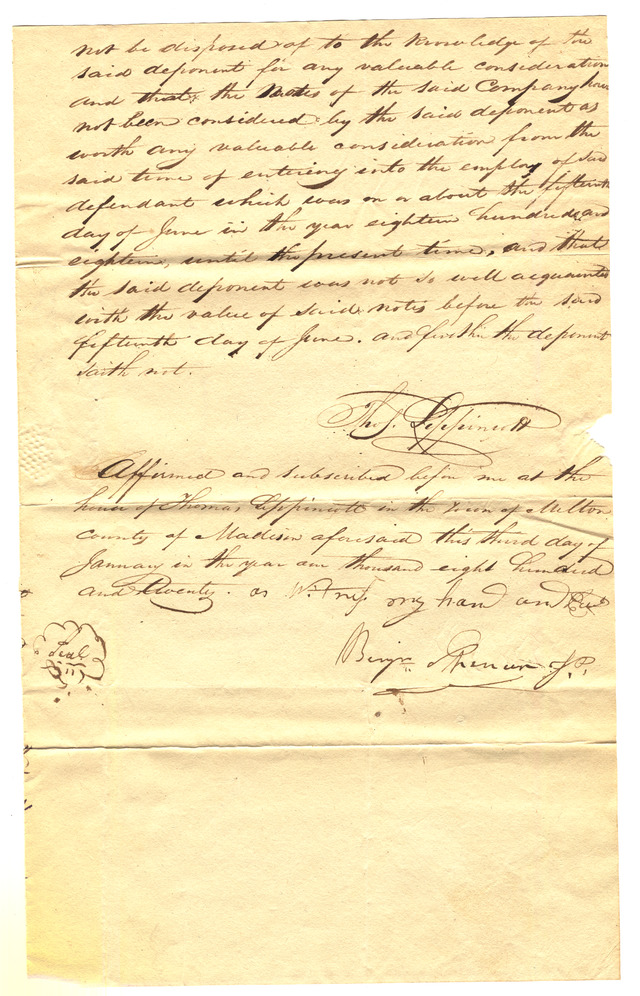 not be disposed of to the knowledge of the
said deponent for any valuable consideration
and that the notes of the said Company have
not been considered by the said deponent as
worth any valuable consideration from the
said time of entering into the employ of said
defendant which was on or about the fifteenth
day of June in the year eighteen hundred and
eighteen, until the present time, and that
the said deponent was not so well acquainted
with the value of said notes before the said
fifteenth day of June. and further the deponent
saith not.
Thos. Lippincott
Affirmed and subscribed before me at the
house of Thomas Lippincott in the Town of Milton
county of Madison aforesaid this third day of
January in the year one thousand eight hundred
and twenty. as Witness my hand and Seal
Seal
Benjn Spencer J.P.